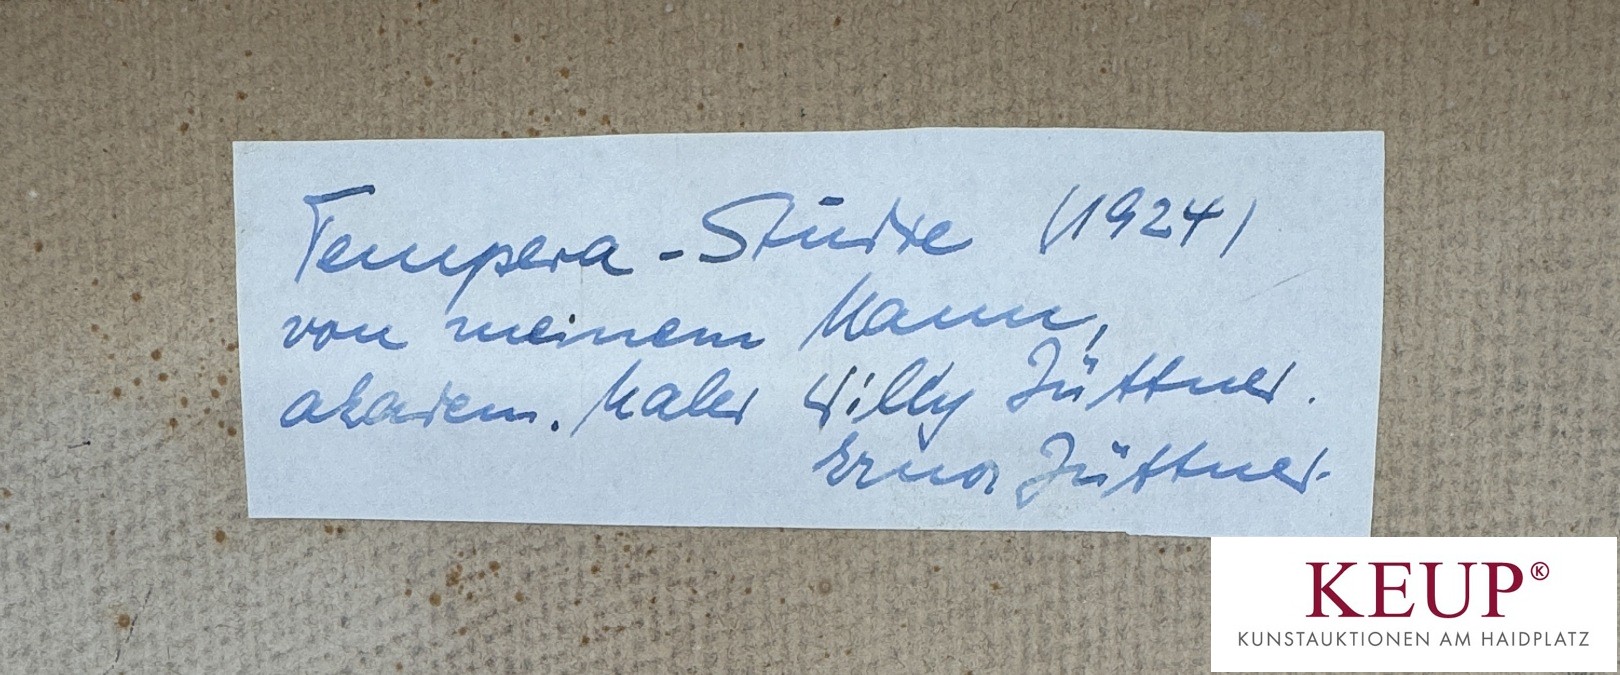 Tempera-Studie (1924)
von meinem Mann,
akadem. Maler Willy Jüttner.
Erna Jüttner.
KEUP®
KUNSTAUKTIONEN AM HAIDPLATZ